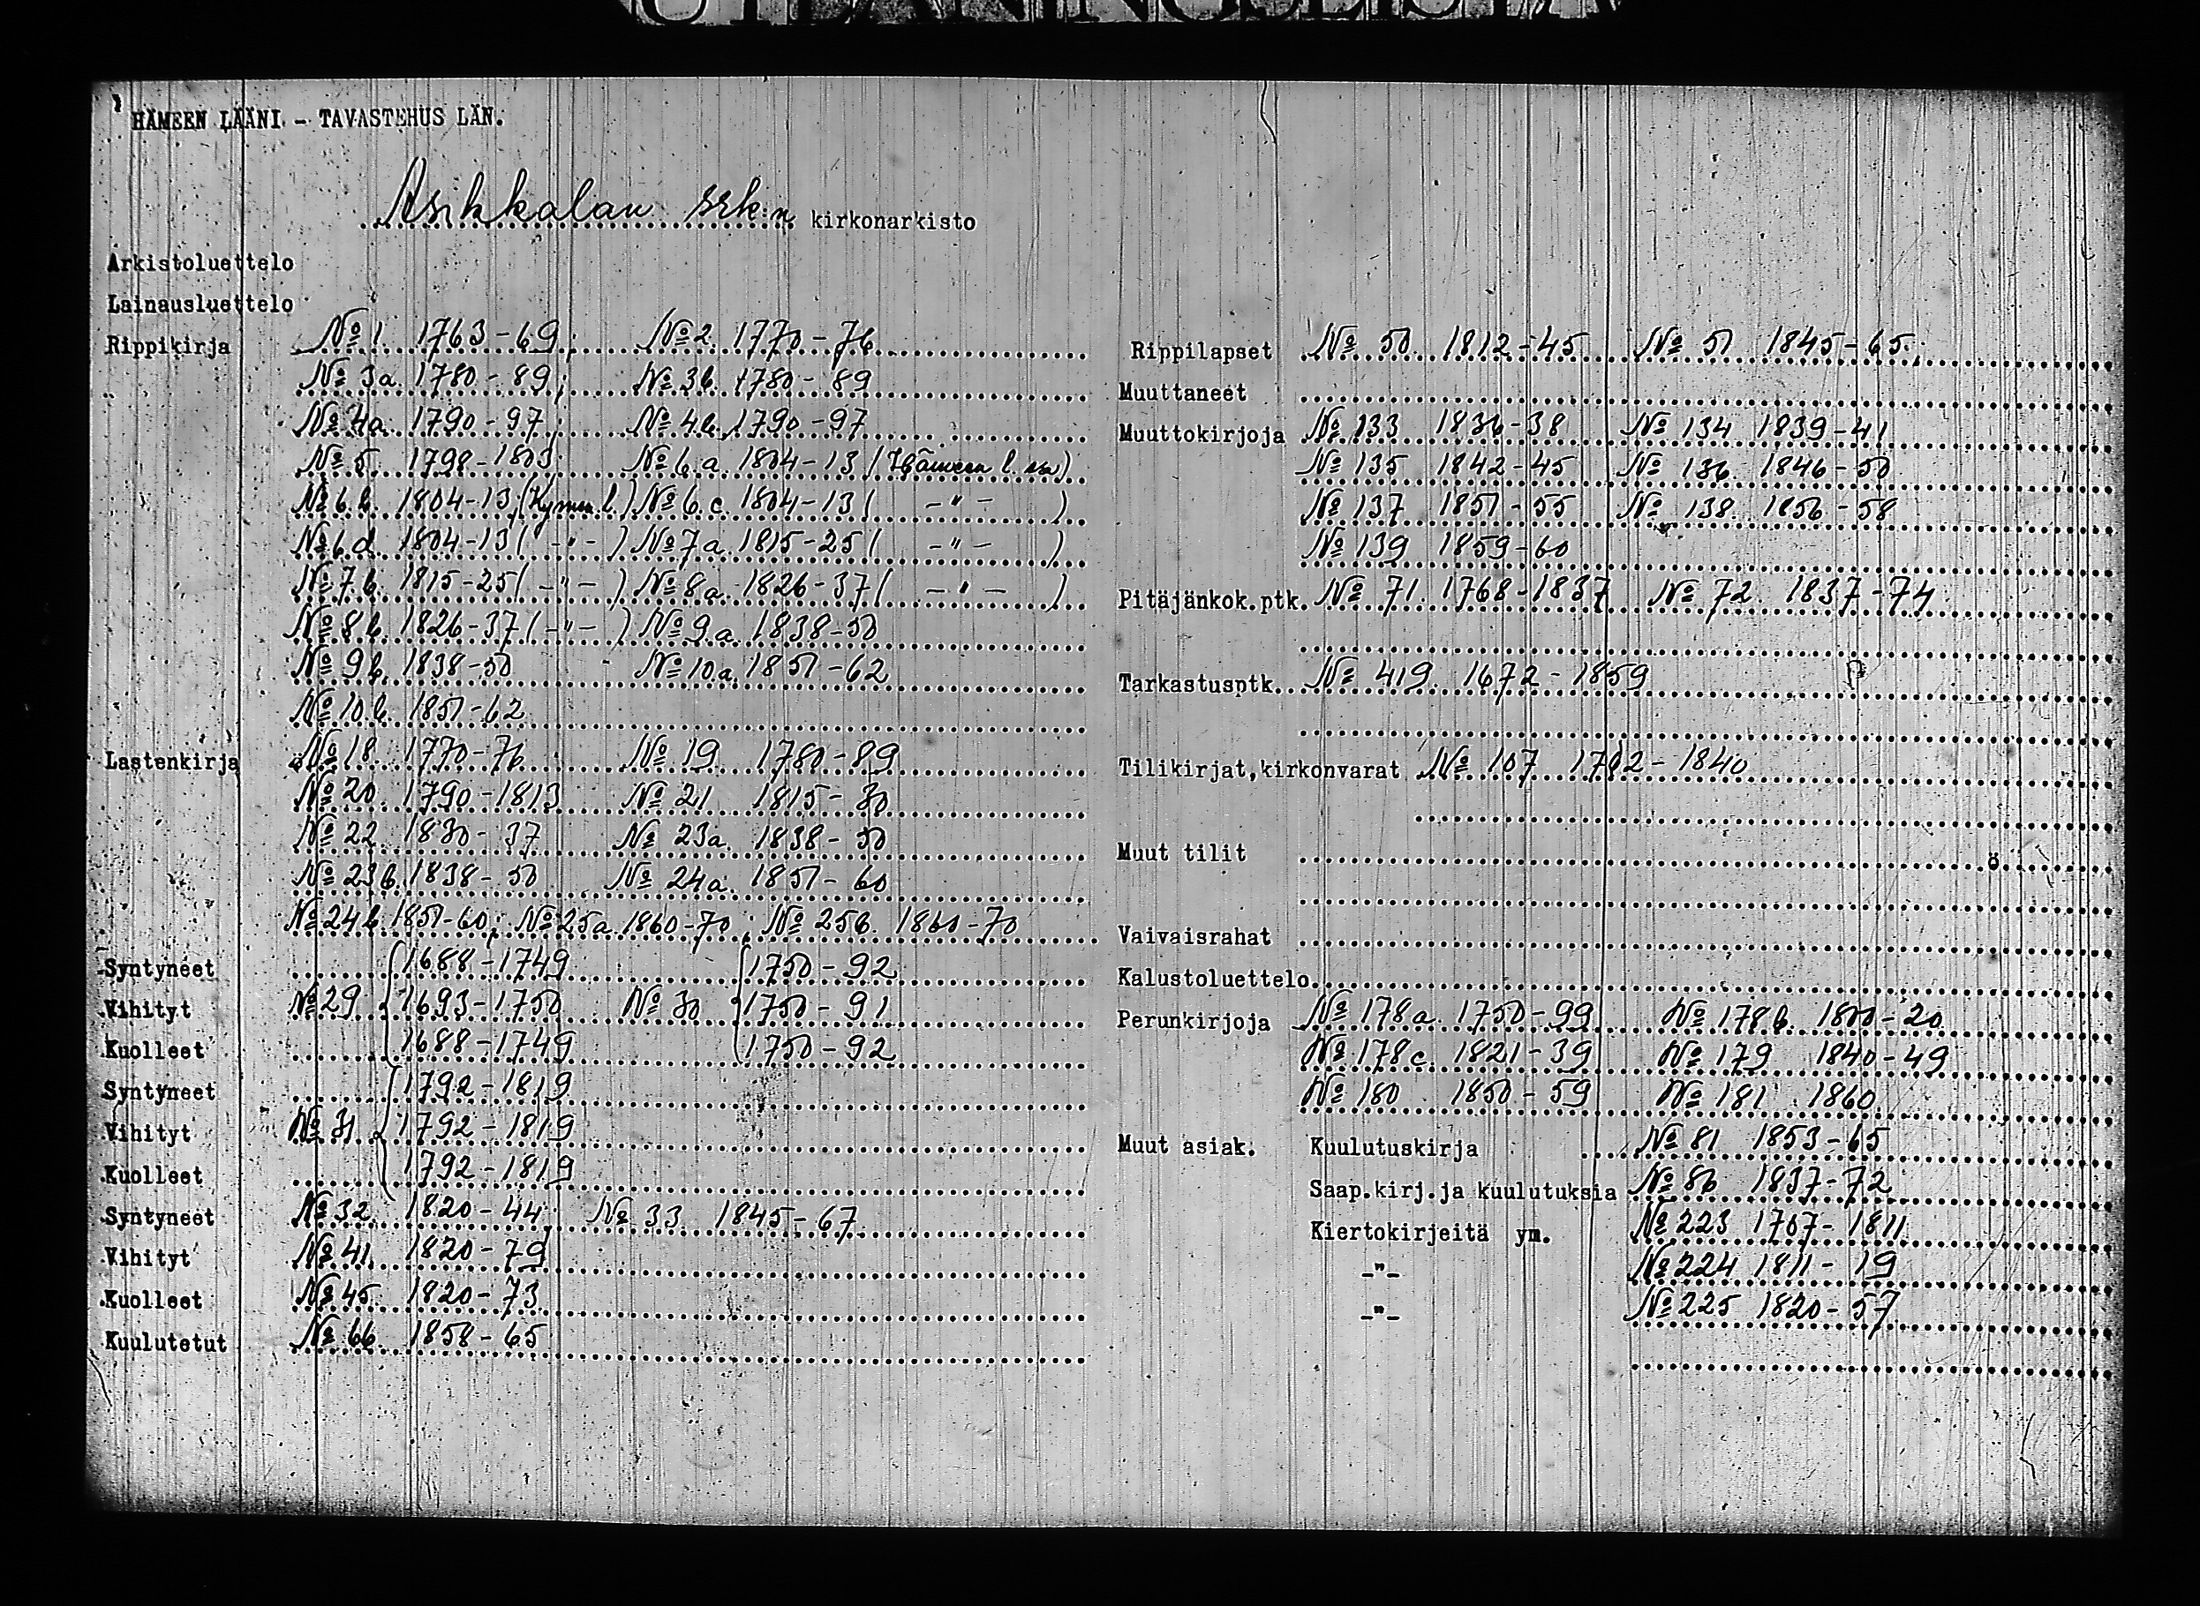 UTLÅNINGSLISTA
HÄMEEN LÄÄNI - TAVASTEHUS LÄN.
Asikkalan srk:n kirkonarkisto
Arkistoluettelo
Lainausluettelo
Rippikirja No 1. 1763-69; No 2. 1770-76
No 3a. 1780-89; No 3b. 1780-89
No 4a. 1790-97; No 4b. 1790-97
No 5. 1798-1803 No 6.a. 1804-13 (Hämeen l.)
No 6.b. 1804-13, (Kymen l.) No 6.c. 1804-13 ( -"- )
No 6.d. 1804-13 ( -"- ) No 7a. 1815-25 ( -"- )
No 7.b. 1815-25 ( -"- ) No 8a. 1826-37 ( -"- )
No 8b. 1826-37 ( -"- ) No 9.a. 1838-50
No 9b. 1838-50 No 10.a. 1851-62
No 10.b. 1851-62
Lastenkirja No 18. 1770-76 No 19 1780-89
No 20. 1790-1813 No 21 1815-30
No 22. 1830-37 No 23a. 1838-50
No 23b. 1838-50 No 24a. 1851-60
No 24b. 1851-60; No 25a 1860-70; No 25b. 1860-70
Syntyneet 1688-1749 1750-92
Vihityt No 29 1693-1750 No 30 1750-91
Kuolleet 1688-1749 1750-92
Syntyneet 1792-1819
Vihityt No 31 1792-1819
Kuolleet 1792-1819
Syntyneet No 32. 1820-44 No 33 1845-67
Vihityt No 41. 1820-79
Kuolleet No 45. 1820-73
Kuulutetut No 66 1858-65
Rippilapset No 50. 1812-45 No 51 1845-65.
Muuttaneet
Muuttokirjoja No 133 1836-38 No 134 1839-41
No 135 1842-45 No 136. 1846-50
No 137 1851-55 No 138. 1856-58
No 139 1859-60
Pitäjänkok.ptk. No 71. 1768-1837 No 72. 1837-74
Tarkastusptk. No 419. 1672-1859
Tilikirjat,kirkonvarat No 107 1702-1840
Muut tilit
Vaivaisrahat
Kalustoluettelo
Perunkirjoja No 178a. 1750-99 No 178b. 1800-20
No 178c. 1821-39 No 179 1840-49
No 180 1850-59 No 181 1860
Muut asiak. Kuulutuskirja No 81 1853-65
Saap.kirj.ja kuulutuksia No 86 1837-72
Kiertokirjeitä ym. No 223 1707-1811
-"- No 224 1811-19
-"- No 225 1820-57